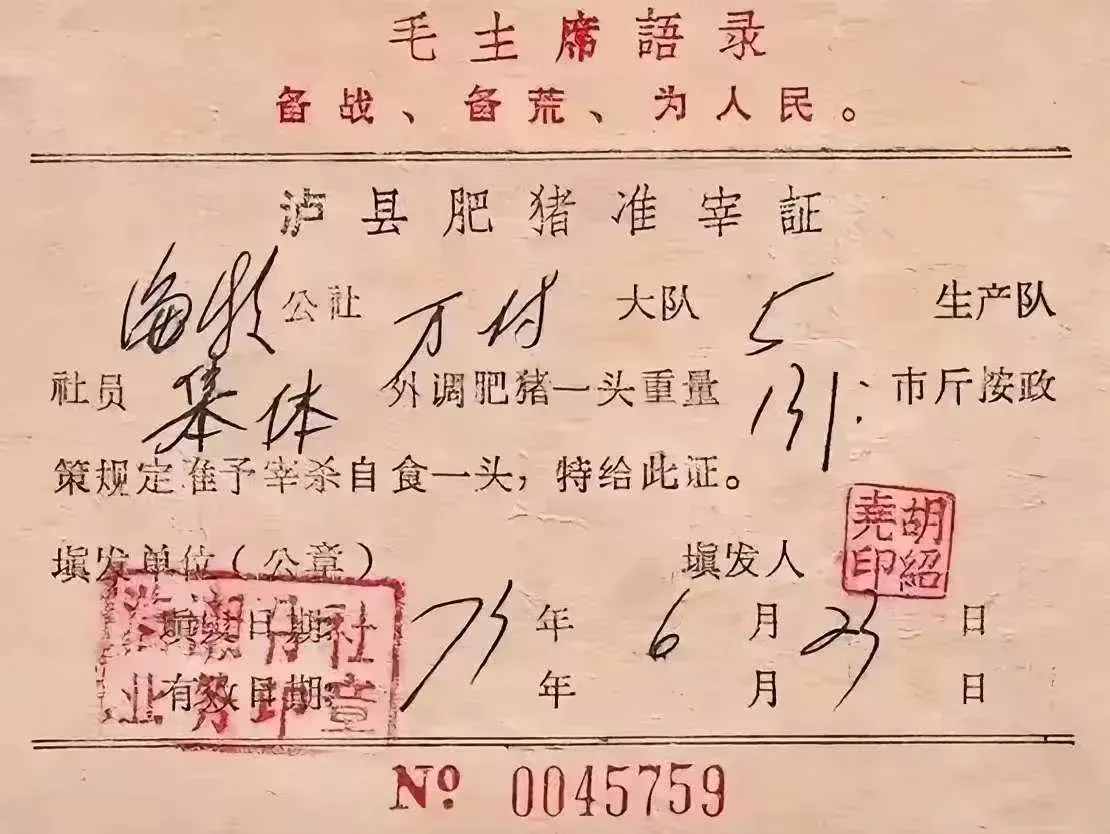 毛主席語录
备战、备荒、为人民。
泸县肥猪准宰証
海潮公社 万付 大队 5 生产队
社员 集体 外调肥猪一头重量 131. 市斤按政
策规定准予宰杀自食一头，特给此证。
填发单位（公章） 填发人
胡紹尭印
填发日期: 73 年 6 月 23 日
有效日期: 年 月 日
业务印章
№ 0045759